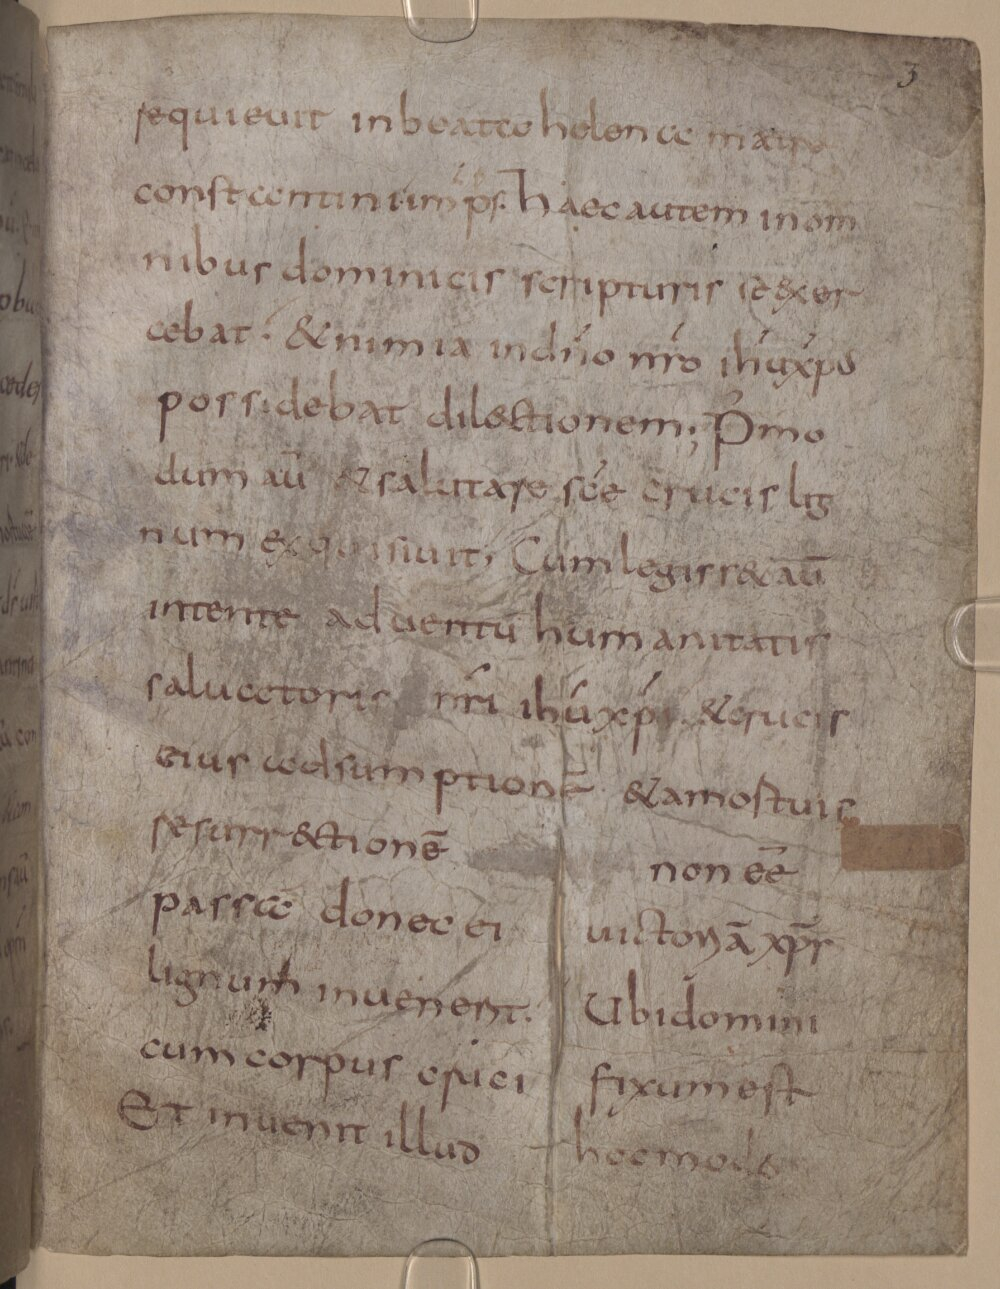 3
requieuit in beata helenae matre
constantini imps. haec autem in om
nibus dominicis scripturis se exer
cebat. & nimia in dño nr̄o ihū xp̄o
possidebat dilectionem; P̄mo
dum aū & salutare sc̄e crucis lig
num exquisiuit; Cum legiss& aū
intente aduentū humanitatis
saluatoris nr̄i ihū xp̄i & crucis
eius adsumptionē & a mortuis
resurr&tionē non eē
passa donec ei uictoriā xp̄s
lignum inueneret. Ubi domini
cum corpus cruci fixum est
Et inuenit illud hoc modo